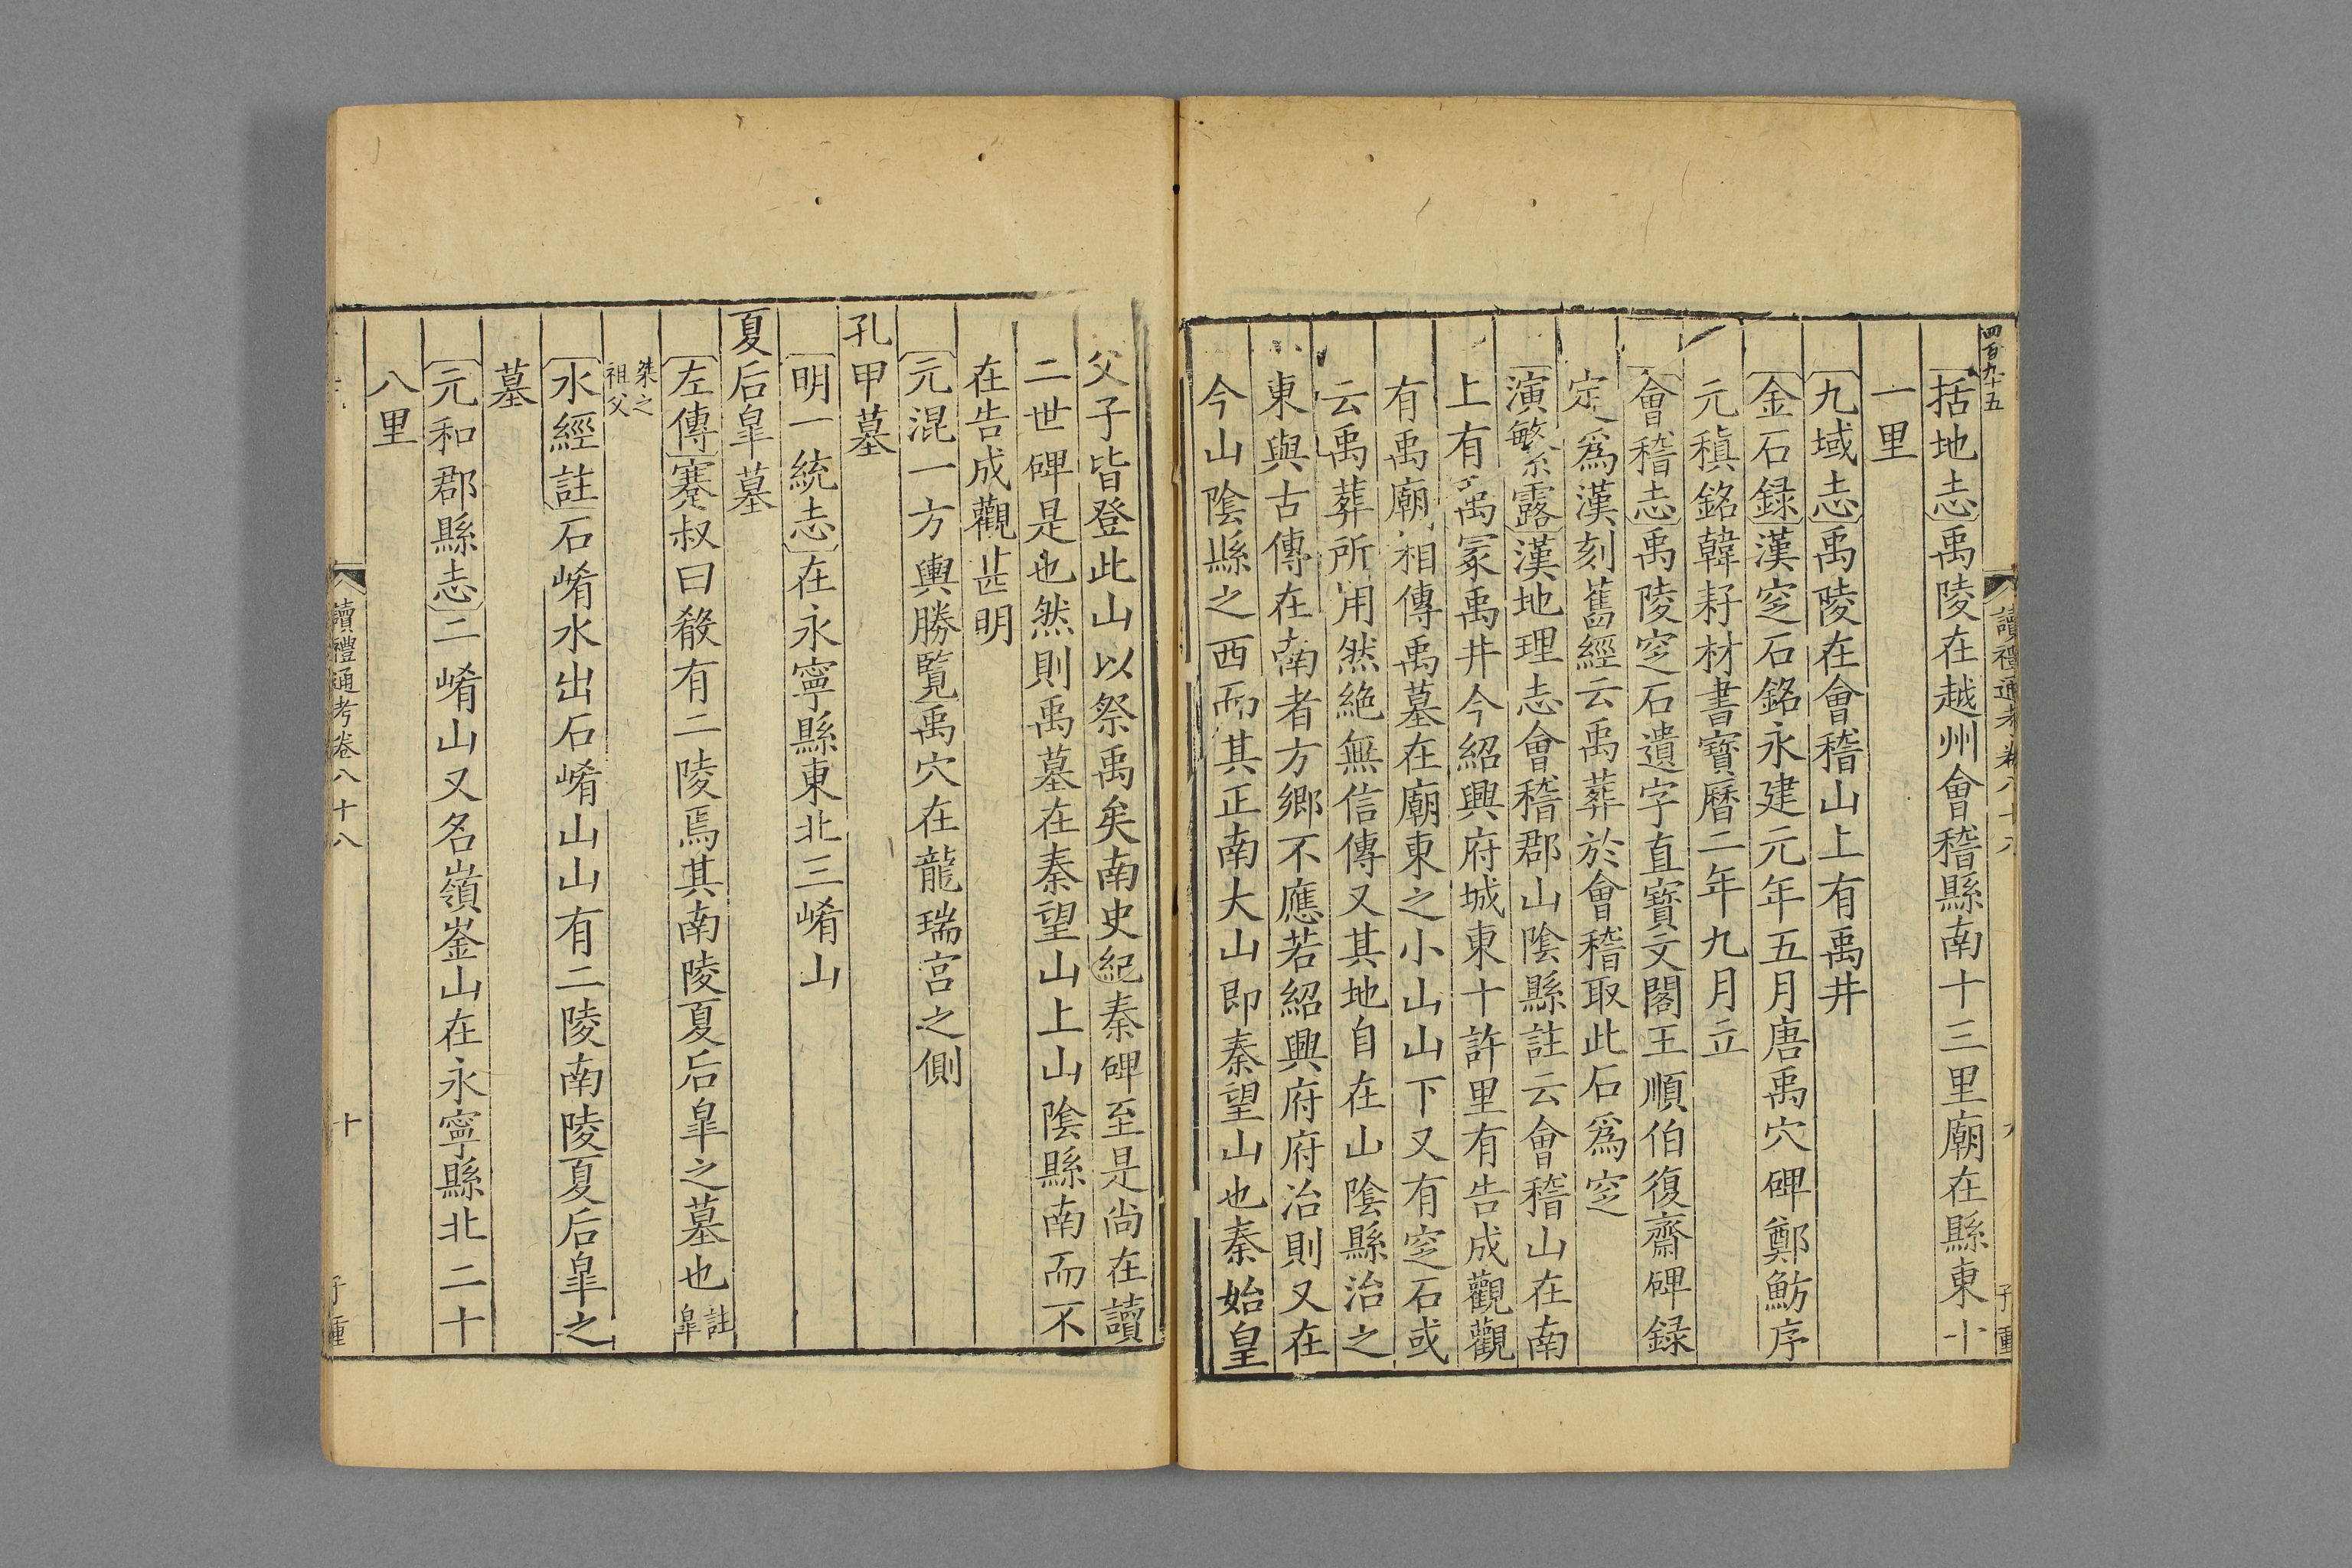 四百九十五
括地志禹陵在越州會稽縣南十三里廟在縣東十
一里
九域志禹陵在會稽山上有禹井
金石録漢窆石銘永建元年五月唐禹穴碑鄭魴序
元稹銘韓耔材書寶曆二年九月立
會稽志禹陵窆石遺字直寳文閣王順伯復齋碑録
定爲漢刻舊經云禹葬於會稽取此石爲窆
演繁露漢地理志會稽郡山隂縣註云會稽山在南
上有禹冢禹井今紹興府城東十許里有告成觀觀
有禹廟相傳禹墓在廟東之小山山下又有窆石或
云禹葬所用然絶無信傳又其地自在山隂縣治之
東與古傳在南者方鄉不應若紹興府府治則又在
今山隂縣之西而其正南大山即秦望山也秦始皇
父子皆登此山以祭禹矣南史紀秦碑至是尚在讀
二世碑是也然則禹墓在秦望山上山隂縣南而不
在告成觀甚明
元混一方輿勝覧禹穴在龍瑞宫之側
孔甲墓
明一統志在永寧縣東北三崤山
夏后臯墓
左傳蹇叔曰殽有二陵焉其南陵夏后臯之墓也註臯
桀之祖父
水經註石崤水出石崤山山有二陵南陵夏后臯之
墓
元和郡縣志二崤山又名嶺崟山在永寧縣北二十
八里
讀禮通考卷八十八
十